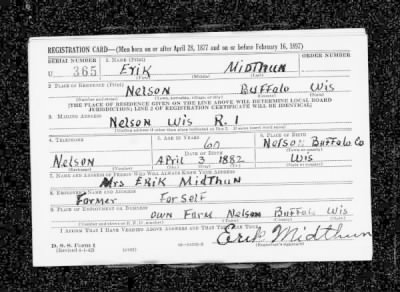 REGISTRATION CARD—(Men born on or after April 28, 1877 and on or before February 16, 1897)
SERIAL NUMBER 1. NAME (Print) ORDER NUMBER
U 365 Erik Midthun
(First) (Middle) (Last)
2. PLACE OF RESIDENCE (Print)
Nelson Buffalo Wis
[THE PLACE OF RESIDENCE GIVEN ON THE LINE ABOVE WILL DETERMINE LOCAL BOARD
JURISDICTION; LINE 2 OF REGISTRATION CERTIFICATE WILL BE IDENTICAL]
3. MAILING ADDRESS
Nelson Wis R. 1
4. TELEPHONE 5. AGE IN YEARS 6. PLACE OF BIRTH
60 Nelson Buffalo Co
DATE OF BIRTH
Nelson April 3 1882 Wis
7. NAME AND ADDRESS OF PERSON WHO WILL ALWAYS KNOW YOUR ADDRESS
Mrs Erik Midthun
8. EMPLOYER'S NAME AND ADDRESS
Farmer For self
9. PLACE OF EMPLOYMENT OR BUSINESS
own Farm Nelson Buffalo Wis
I AFFIRM THAT I HAVE VERIFIED ABOVE ANSWERS AND THAT THEY ARE TRUE.
D. S. S. Form 1 Erik Midthun